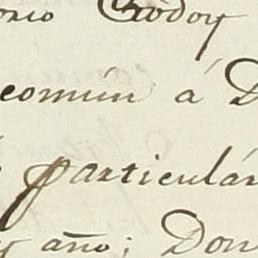 onio Godoy
común á D
particulár
y año; Don